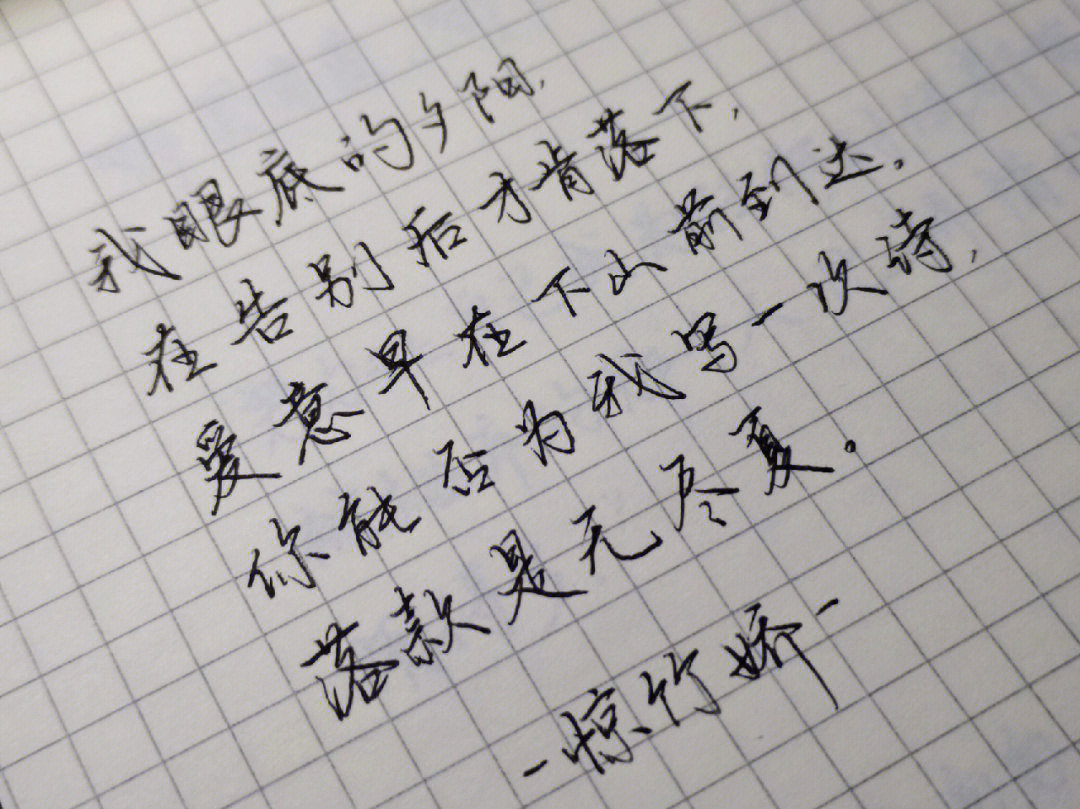 我眼底的夕阳，
在告别后才肯落下，
爱意早在下山前到达。
你能否为我写一次诗，
落款是无尽夏。
-惊竹娇-